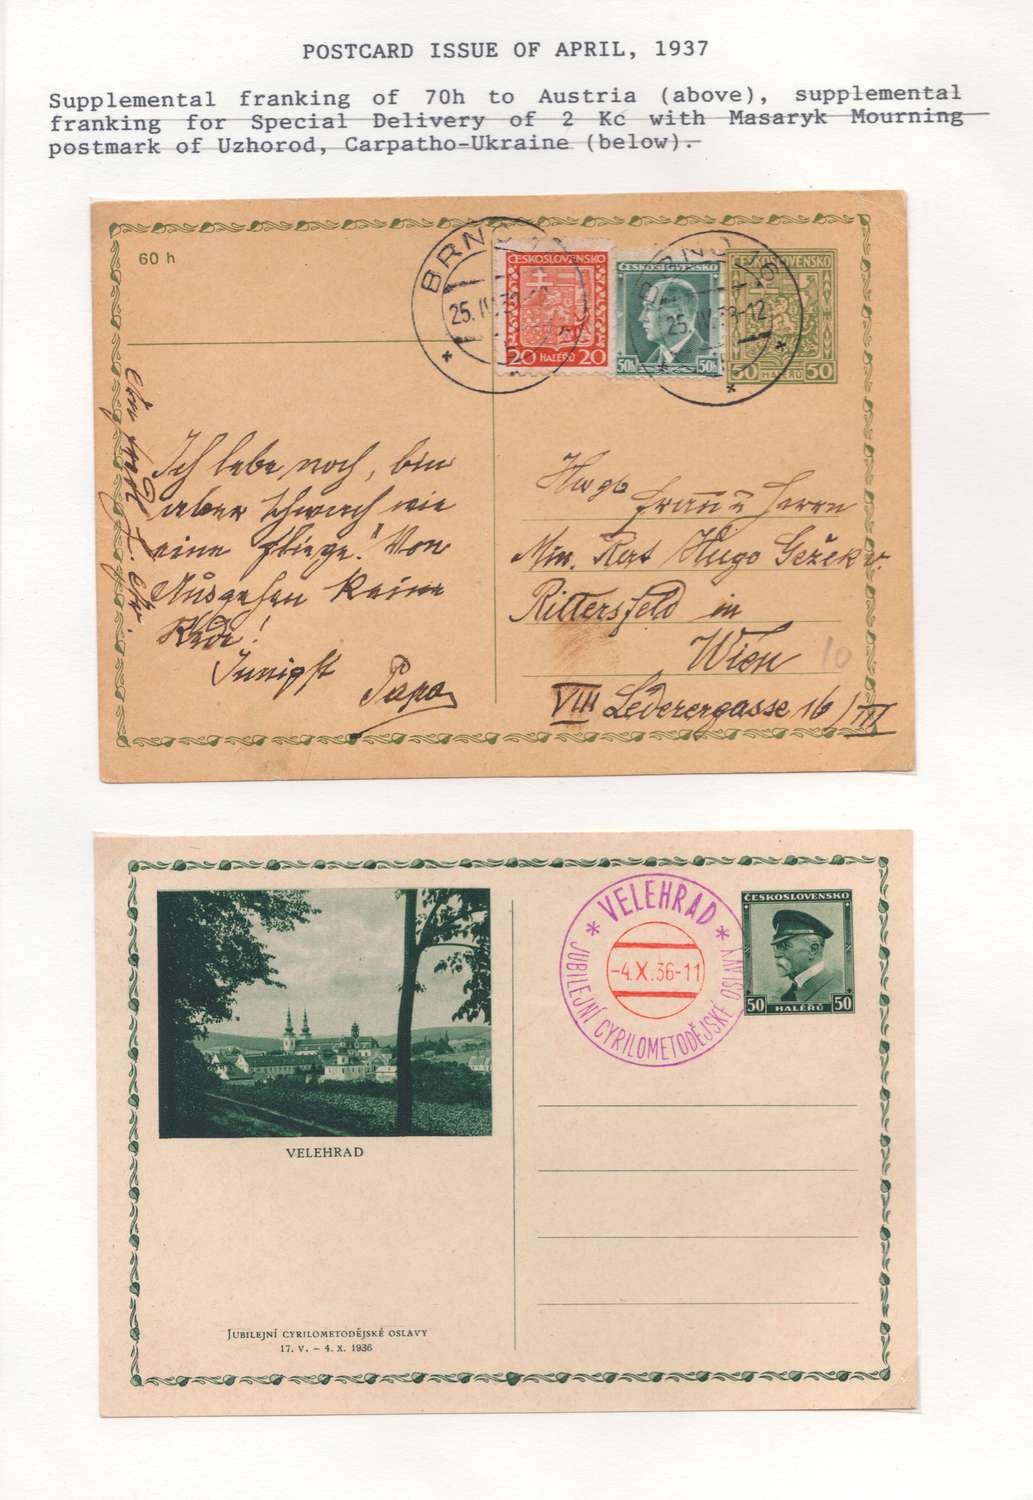 POSTCARD ISSUE OF APRIL, 1937
Supplemental franking of 70h to Austria (above), supplemental
franking for Special Delivery of 2 Kc with Masaryk Mourning
postmark of Uzhorod, Carpatho-Ukraine (below).
60 h
BRNO
25. IV. 38-12
ČESKOSLOVENSKO
20 HALÉŘŮ 20
ČESKOSLOVENSKO
50h 50h
BRNO 16
25. IV. 38-12
ČESKOSLOVENSKO
50 HALÉŘŮ 50
Ich lebe noch, bin
aber schwach wie
eine Fliege! Von
Ausgehen keine
Rede!
Innigst
Papa
Hwgb
Franz Herrn
Min. Rat Hugo Ježek v.
Rittersfeld in
Wien
10
VIII Lederergasse 16/III
VELEHRAD
JUBILEJNÍ CYRILOMETODĚJSKÉ OSLAVY
-4.X.36-11
ČESKOSLOVENSKO
50 HALÉŘŮ 50
VELEHRAD
JUBILEJNÍ CYRILOMETODĚJSKÉ OSLAVY
17. V. - 4. X. 1936